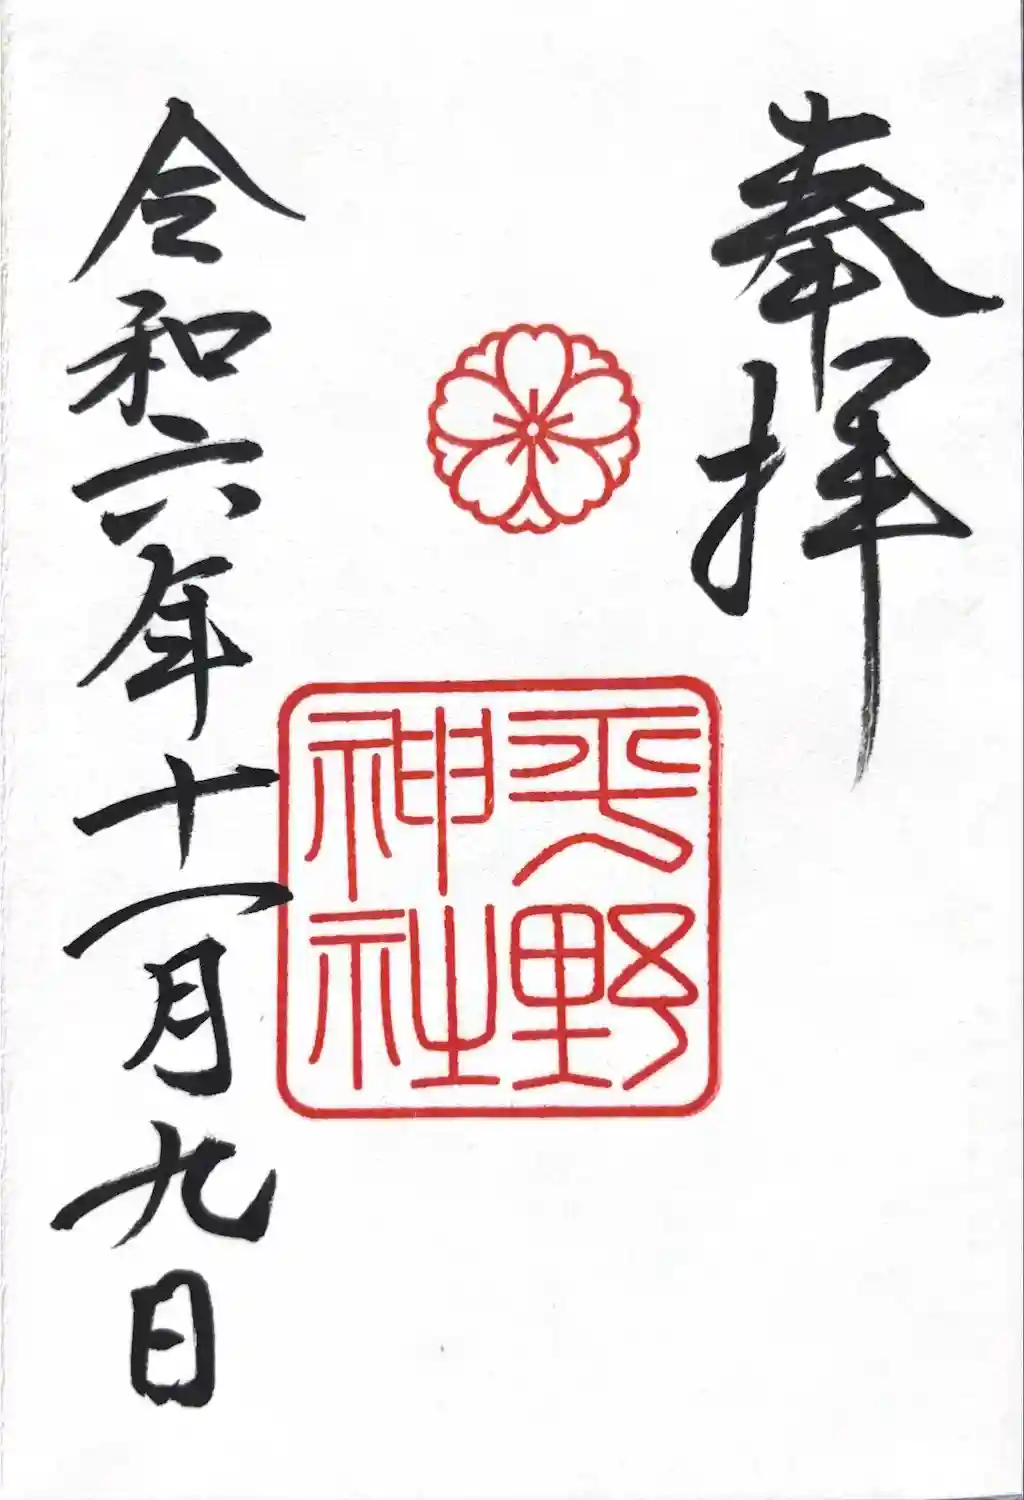 奉拝
平野
神社
令和六年十一月九日